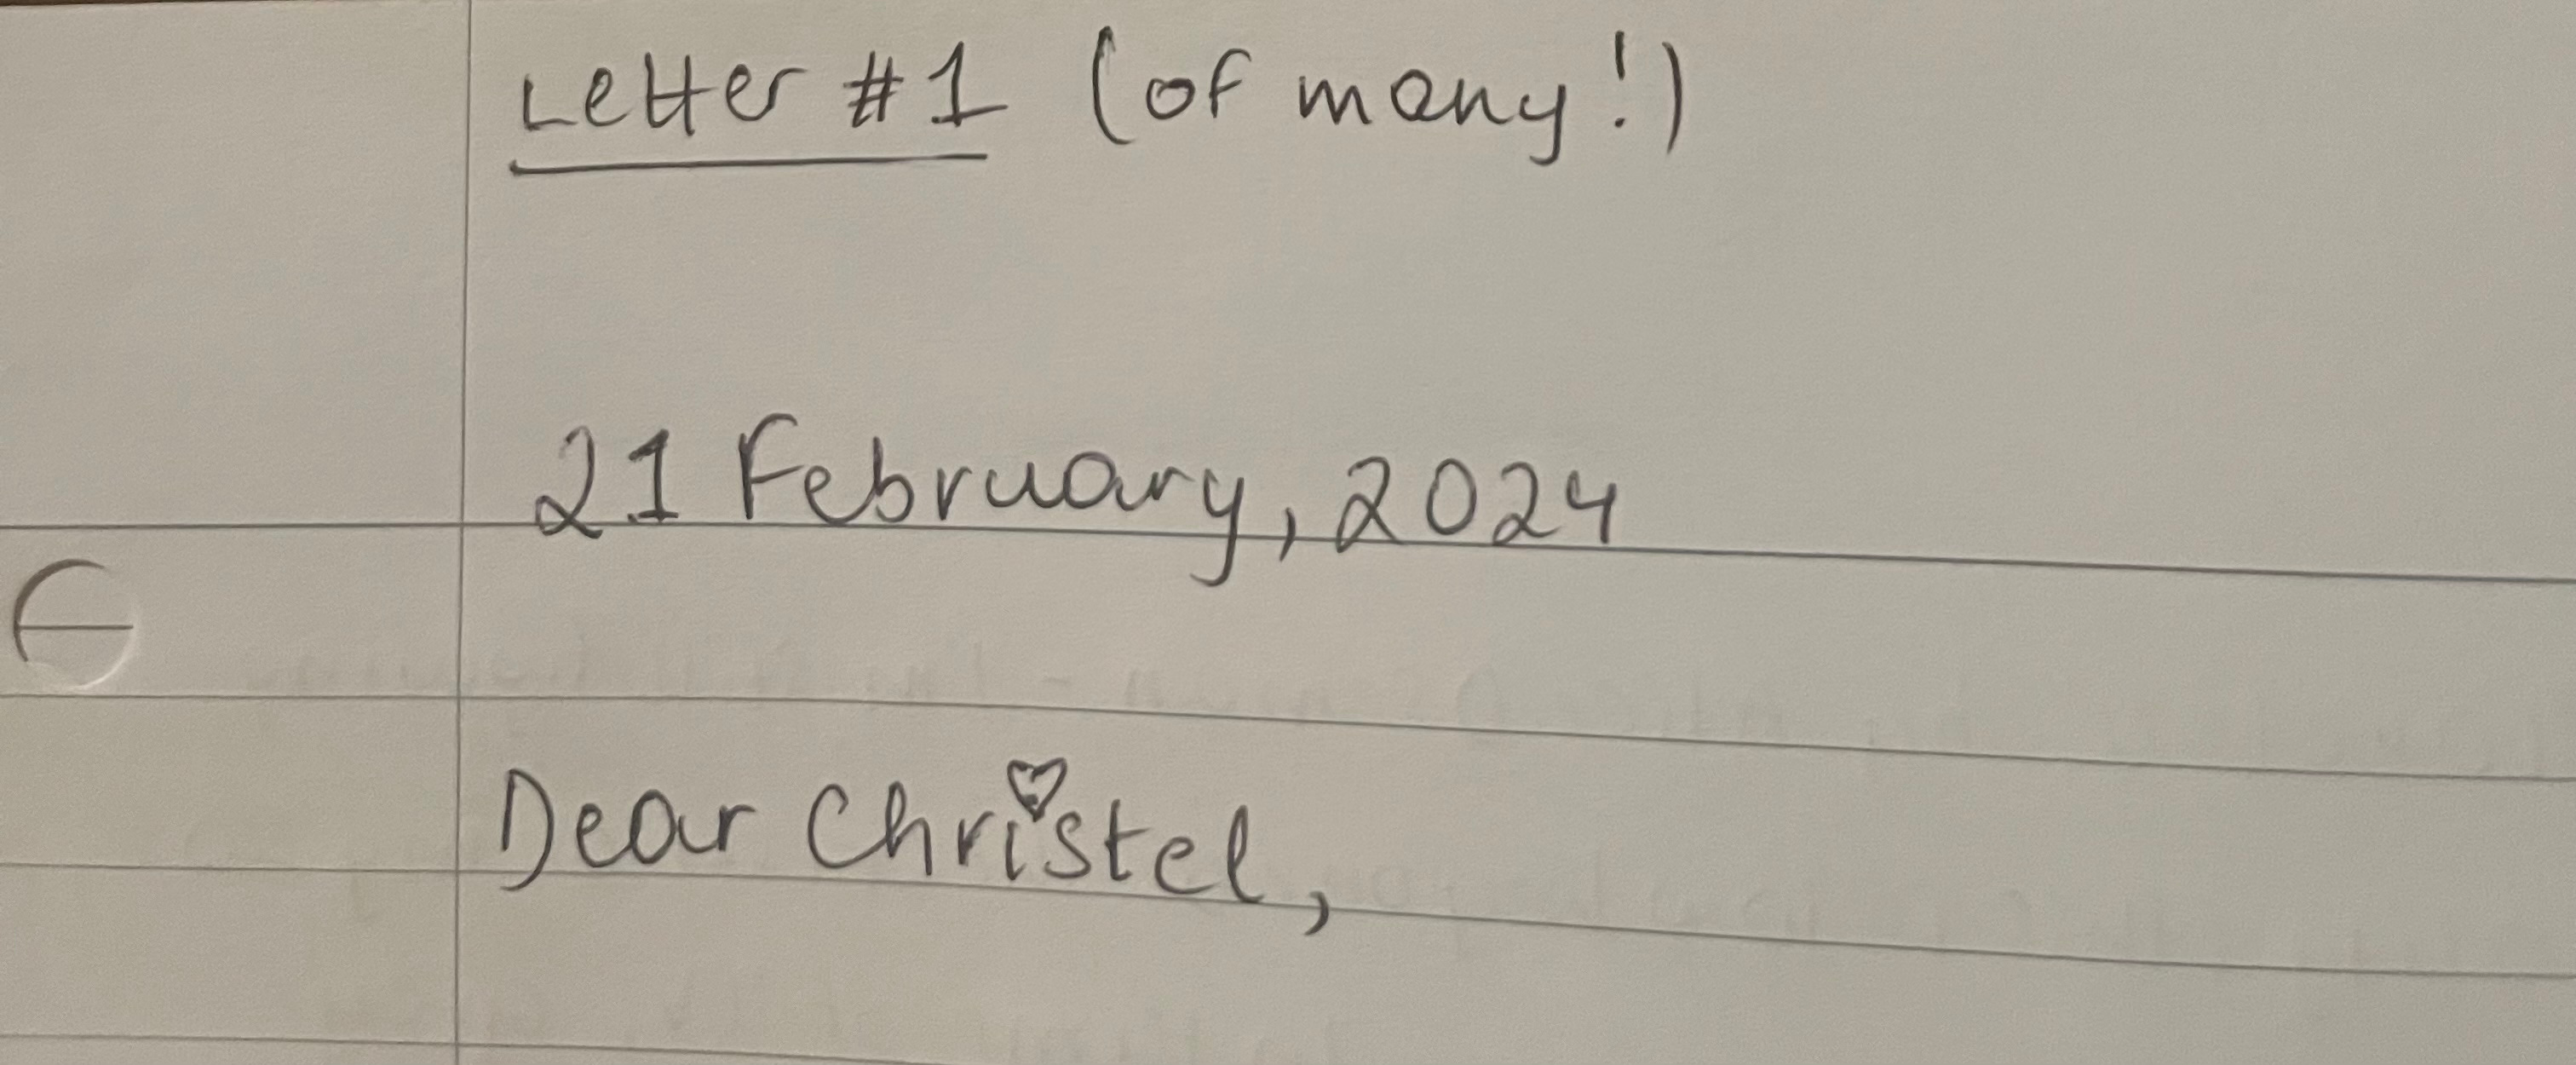 Letter #1 (of many!)
21 February, 2024
Dear Christel,